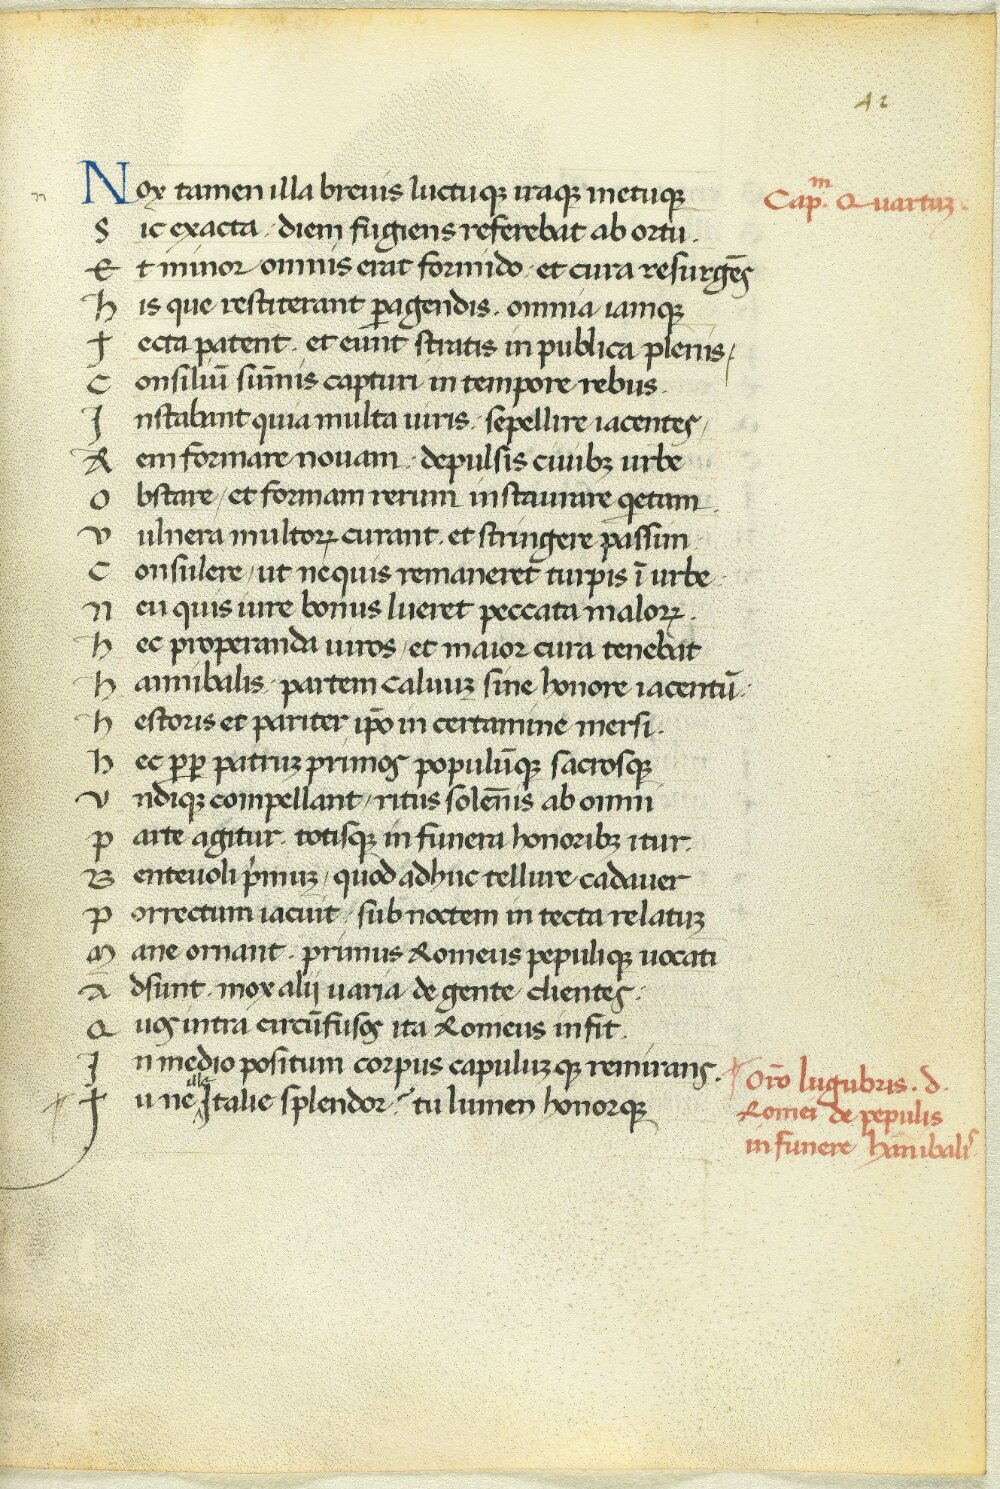 42
Nox tamen illa breuis luctuqȝ iraqȝ metuqȝ
Capm. Quartuȝ.
Sic exacta . diem fugiens referebat ab ortu .
Et minor omnis erat formido . et cura resurgēs
his que restiterant ꝑagendis . omnia iamqȝ
Tecta patent . et eunt stratis in publica plenis /
Consiliū sūmis capturi in tempore rebus .
Instabant quia multa uiris . sepellire iacentes /
Rem formare nouam . depulsis ciuibȝ urbe
Obstare / et formam rerum instaurare qetam .
Vulnera multoꝝ curant . et stringere passim
Consulere / ut nequis remaneret turpis ī urbe
Neu quis iure bonus lueret peccata maloꝝ .
hec properanda uiros / et maior cura tenebat
hannibalis . partem caluuȝ sine honore iacentū .
hestoris et pariter ip̄o in certamine mersi .
hec ꝑꝑ patruȝ primos populūqȝ sacrosqȝ
Vndiqȝ compellant / ritus solēnis ab omni
parte agitur . totisqȝ in funera honoribȝ itur .
Benteuoli pͥmuȝ / quod adhuc tellure cadauer
porrectum iacuit / sub noctem in tecta relatuȝ
Mane ornant . primus Romeus pepuliqȝ uocati
Adsunt . mox alij uaria de gente clientes .
Quos intra circūfusos ita Romeus infit .
In medio positum corpus capuluȝ qȝ remirans .
Tu ne ille Italie splendor ? tu lumen honorqȝ
Orō lugubris . d.
Romei de pepulis
in funere hānibalis